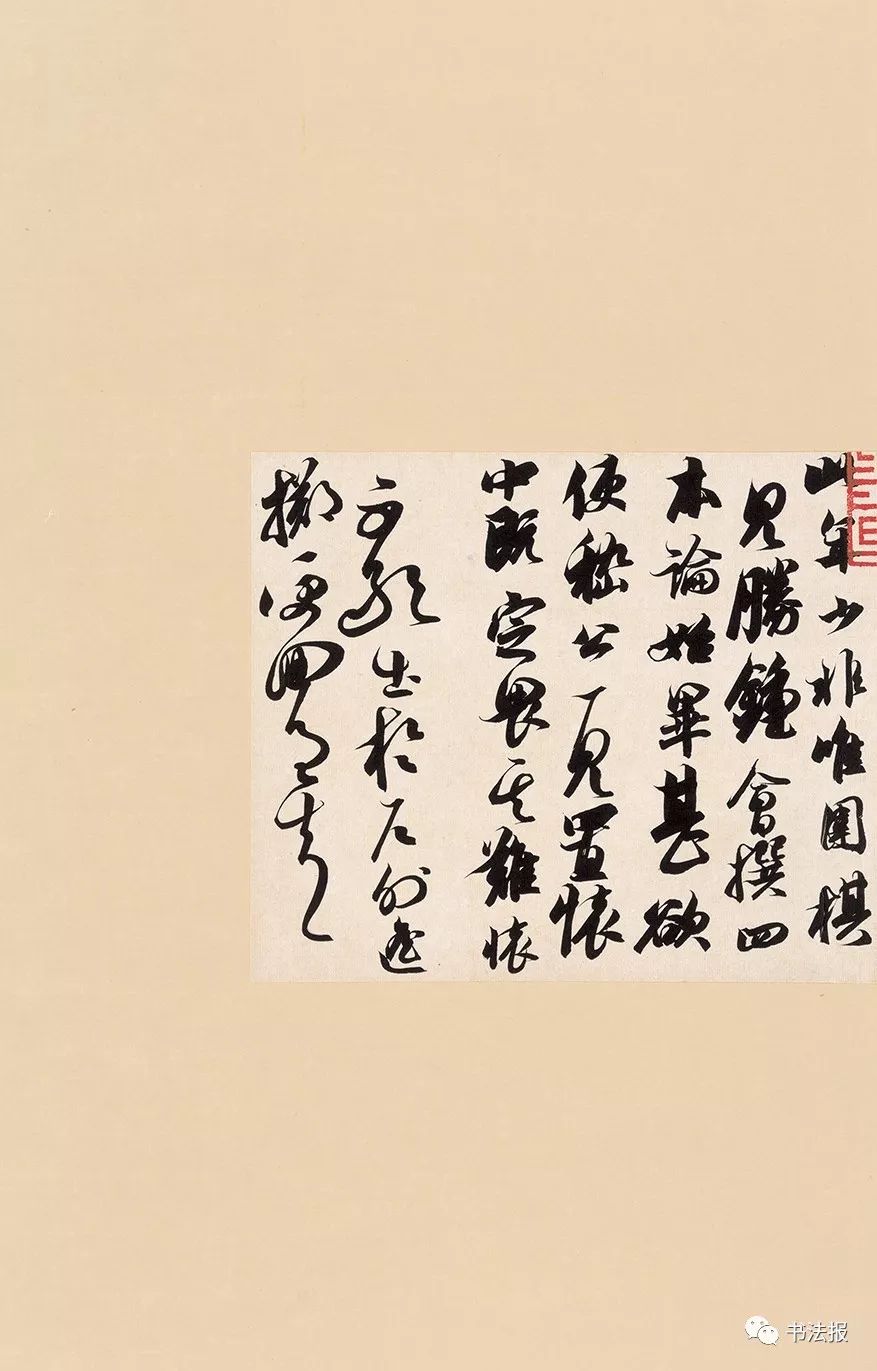 此年少非唯圍棋
見勝鍾會撰四
本論始畢甚欲
使嵇公一見置懷
中既定畏其難懷
不敢出於戶外遙
擲便回急走
书法报